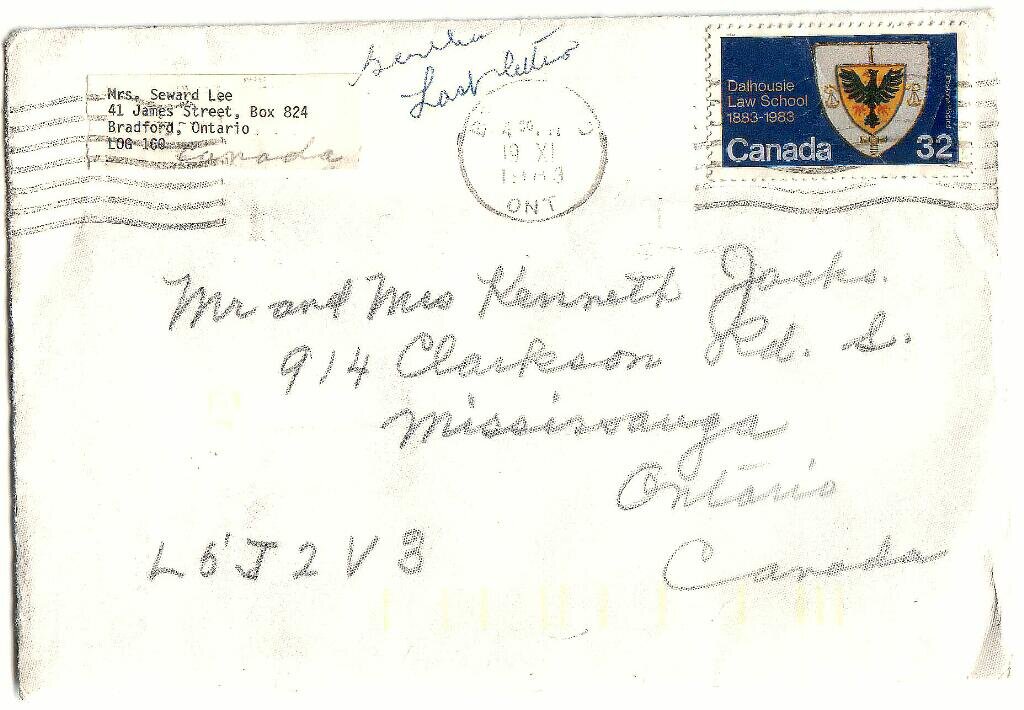 Last letter
Mrs. Seward Lee
41 James Street, Box 824
Bradford, Ontario
L0G 160
Canada
19 XI
1983
ONT
Dalhousie
Law School
1883-1983
Canada 32
Mr and Mrs Kenneth Jacks.
914 Clarkson Rd. S.
Mississauga
Ontario
Canada
L5J2V3